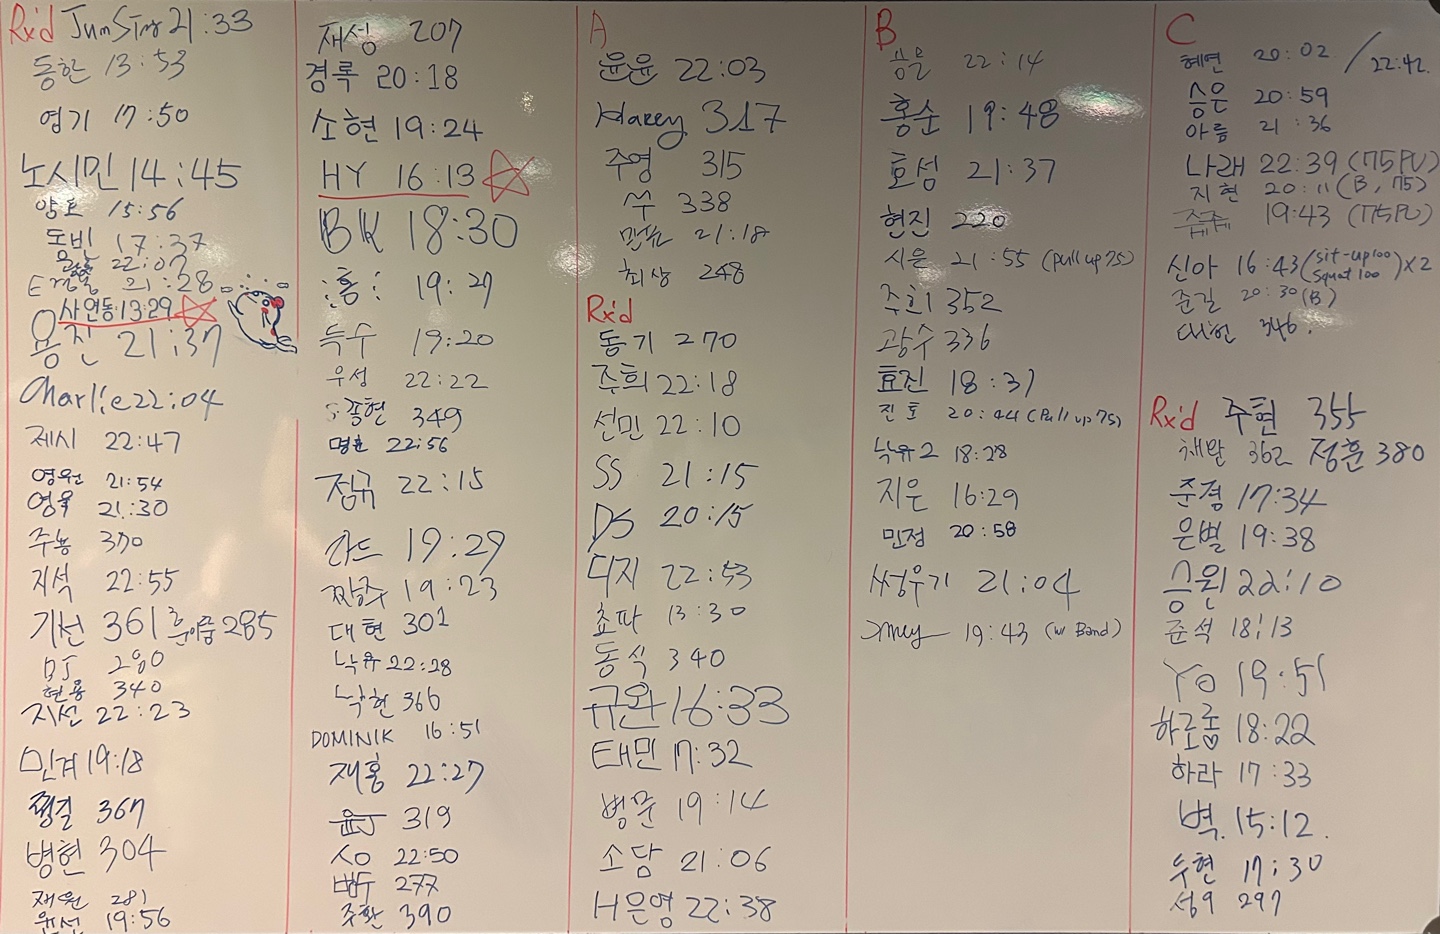 Rx'd JunSing 21:33
동한 13:53
영기 17:50
노시민 14:45
양호 15:56
도빈 17:37
22:07
21:28
사연동 13:29
용진 21:37
Charlie 22:04
제시 22:47
영원 21:54
영욱 21:30
주농 370
지석 22:55
기선 361 285
BJ 280
현용 340
지선 22:23
민계 19:18
367
병헌 304
재원 281
원선 19:56
재성 207
경록 20:18
소현 19:24
HY 16:13
BK 18:30
:홍: 19:27
녹수 19:20
우성 22:22
종현 349
명훈 22:56
정규 22:15
19:29
짱구 19:23
대현 301
낙유 22:28
낙현 366
DOMINIK 16:51
재홍 22:27
319
22:50
범수 277
주환 390
A
윤윤 22:03
Harey 317
주영 315
338
21:18
최상 248
Rx'd
동기 270
주희 22:18
선민 22:10
SS 21:15
DS 20:15
디지 22:53
쵸파 13:30
동식 340
규완 16:33
태민 17:32
병문 19:14
소담 21:06
H은영 22:38
B
22:14
홍순 19:48
효성 21:37
현진 220
시은 21:55 (pull up 75)
주희 352
광수 336
효진 18:37
진호 20:44 (Pull up 75)
낙유2 18:28
지은 16:29
민정 20:58
써우기 21:04
19:43 (w/ Band)
C
혜연 20:02 / 22:42.
승은 20:59
아름 21:36
나래 22:39 (175PU)
지현 20:11 (B, 75)
19:43 (175PU)
신아 16:43 (sit-up 100 squat 100) X2
준길 20:30 (B)
대헌 346.
Rx'd 주현 355
채만 362 정훈 380
준경 17:34
은별 19:38
승원 22:10
준석 18:13
Yo 19:51
하르롱♡ 18:22
하라 17:33
벽. 15:12.
두현 17:30
성9 297